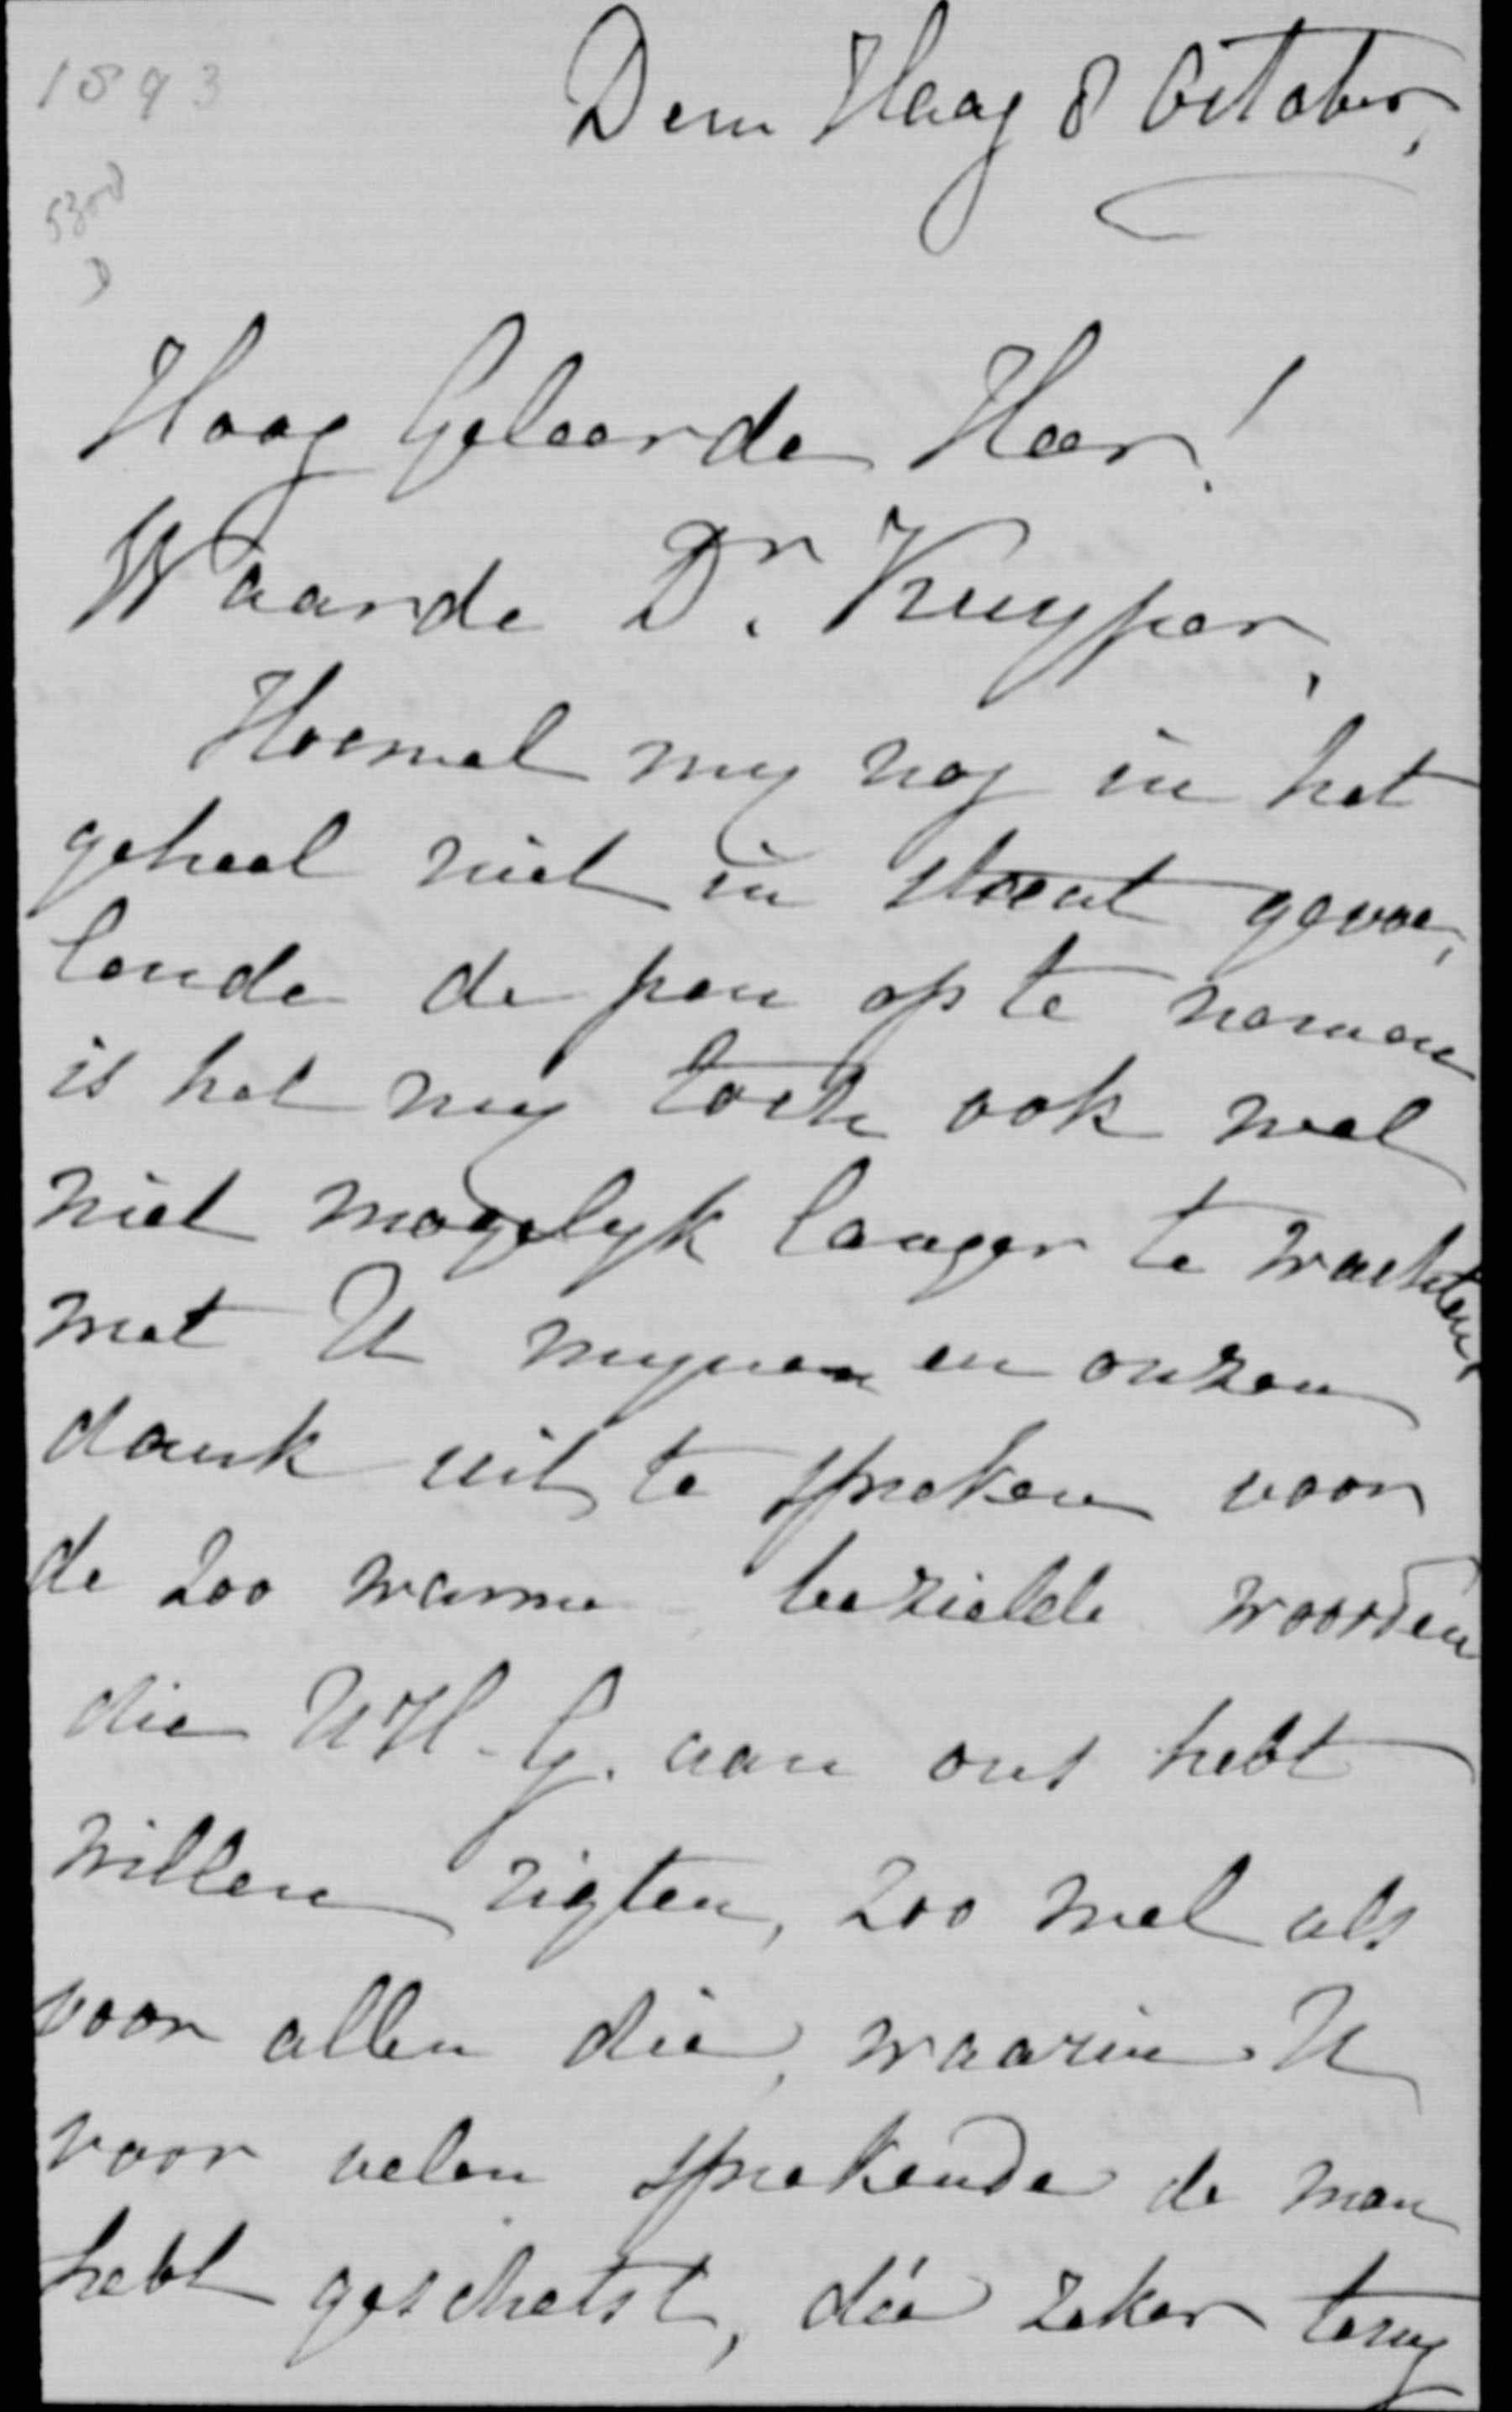 1893
Den Haag 8 October,
5308
Hoog Geleerde Heer!
Waarde Dr. Kuyper,
Hoewel my nog in het
geheel niet in staat gevoe,
lende de pen op te nemen
is het my toch ook wel
niet mogelyk langer te wachten,
met U mynen en onzen
dank uit te spreken voor
de zoo warme bezielde woorden
die UH.G. aan ons hebt
willen rigten, zoo wel als
voor allen die, waarin U
voor velen sprekende de man
hebt geschetst, die zeker terug